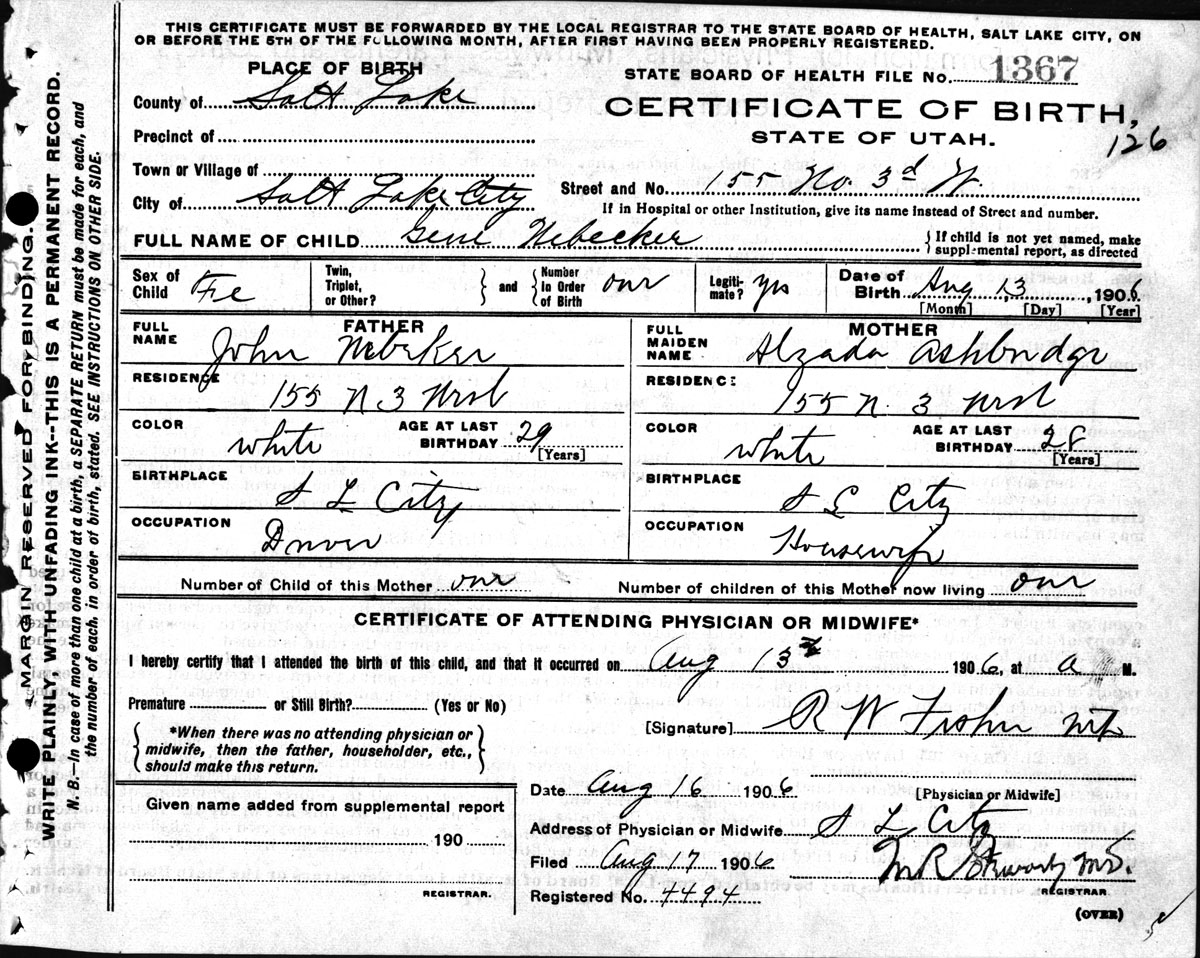 THIS CERTIFICATE MUST BE FORWARDED BY THE LOCAL REGISTRAR TO THE STATE BOARD OF HEALTH, SALT LAKE CITY, ON
OR BEFORE THE 5TH OF THE FOLLOWING MONTH, AFTER FIRST HAVING BEEN PROPERLY REGISTERED.
PLACE OF BIRTH
STATE BOARD OF HEALTH FILE No. 1367
County of Salt Lake
CERTIFICATE OF BIRTH,
Precinct of
STATE OF UTAH.
126
Town or Village of
City of Salt Lake City
Street and No. 155 No. 3d W.
If in Hospital or other Institution, give its name instead of Street and number.
FULL NAME OF CHILD Gene Nebecker
{ If child is not yet named, make
supplemental report, as directed
Sex of Child Fe
Twin, Triplet, or Other? } and { Number in Order of Birth one
Legiti-mate? yes
Date of Birth Aug 13, 1906
[Month] [Day] [Year]
FATHER
FULL NAME John Nebeker
RESIDENCE 155 N 3 West
COLOR White
AGE AT LAST BIRTHDAY 29 [Years]
BIRTHPLACE S L City
OCCUPATION Driver
MOTHER
FULL MAIDEN NAME Alzada Ashbridge
RESIDENCE 155 N. 3 West
COLOR White
AGE AT LAST BIRTHDAY 28 [Years]
BIRTHPLACE S L City
OCCUPATION Housewife
Number of Child of this Mother one
Number of children of this Mother now living one
CERTIFICATE OF ATTENDING PHYSICIAN OR MIDWIFE*
I hereby certify that I attended the birth of this child, and that it occurred on Aug 13 1906, at a M.
Premature or Still Birth? (Yes or No)
{ *When there was no attending physician or
midwife, then the father, householder, etc.,
should make this return. }
[Signature] R W Fisher MD
[Physician or Midwife]
Date Aug 16 1906
Address of Physician or Midwife S L City
Filed Aug 17 1906
M R Stewart M.D.
REGISTRAR.
Registered No. 4494
(OVER)
Given name added from supplemental report
190
REGISTRAR.
MARGIN RESERVED FOR BINDING.
WRITE PLAINLY WITH UNFADING INK--THIS IS A PERMANENT RECORD.
N. B.—In case of more than one child at a birth, a SEPARATE RETURN must be made for each, and
the number of each, in order of birth, stated. SEE INSTRUCTIONS ON OTHER SIDE.